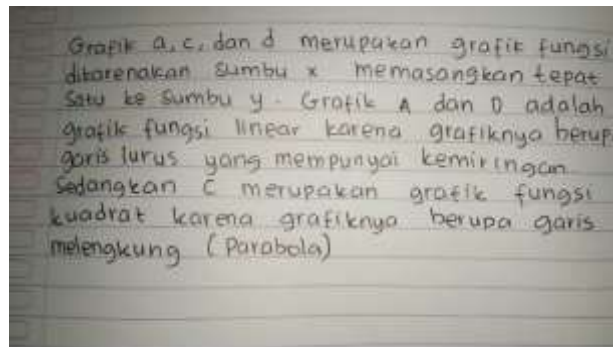 Grafik a, c, dan d merupakan grafik fungsi
dikarenakan sumbu x memasangkan tepat
satu ke sumbu y. Grafik A dan D adalah
grafik fungsi linear karena grafiknya berup
garis lurus yang mempunyai kemiringan
sedangkan C merupakan grafik fungsi
kuadrat karena grafiknya berupa garis
melengkung (Parabola)